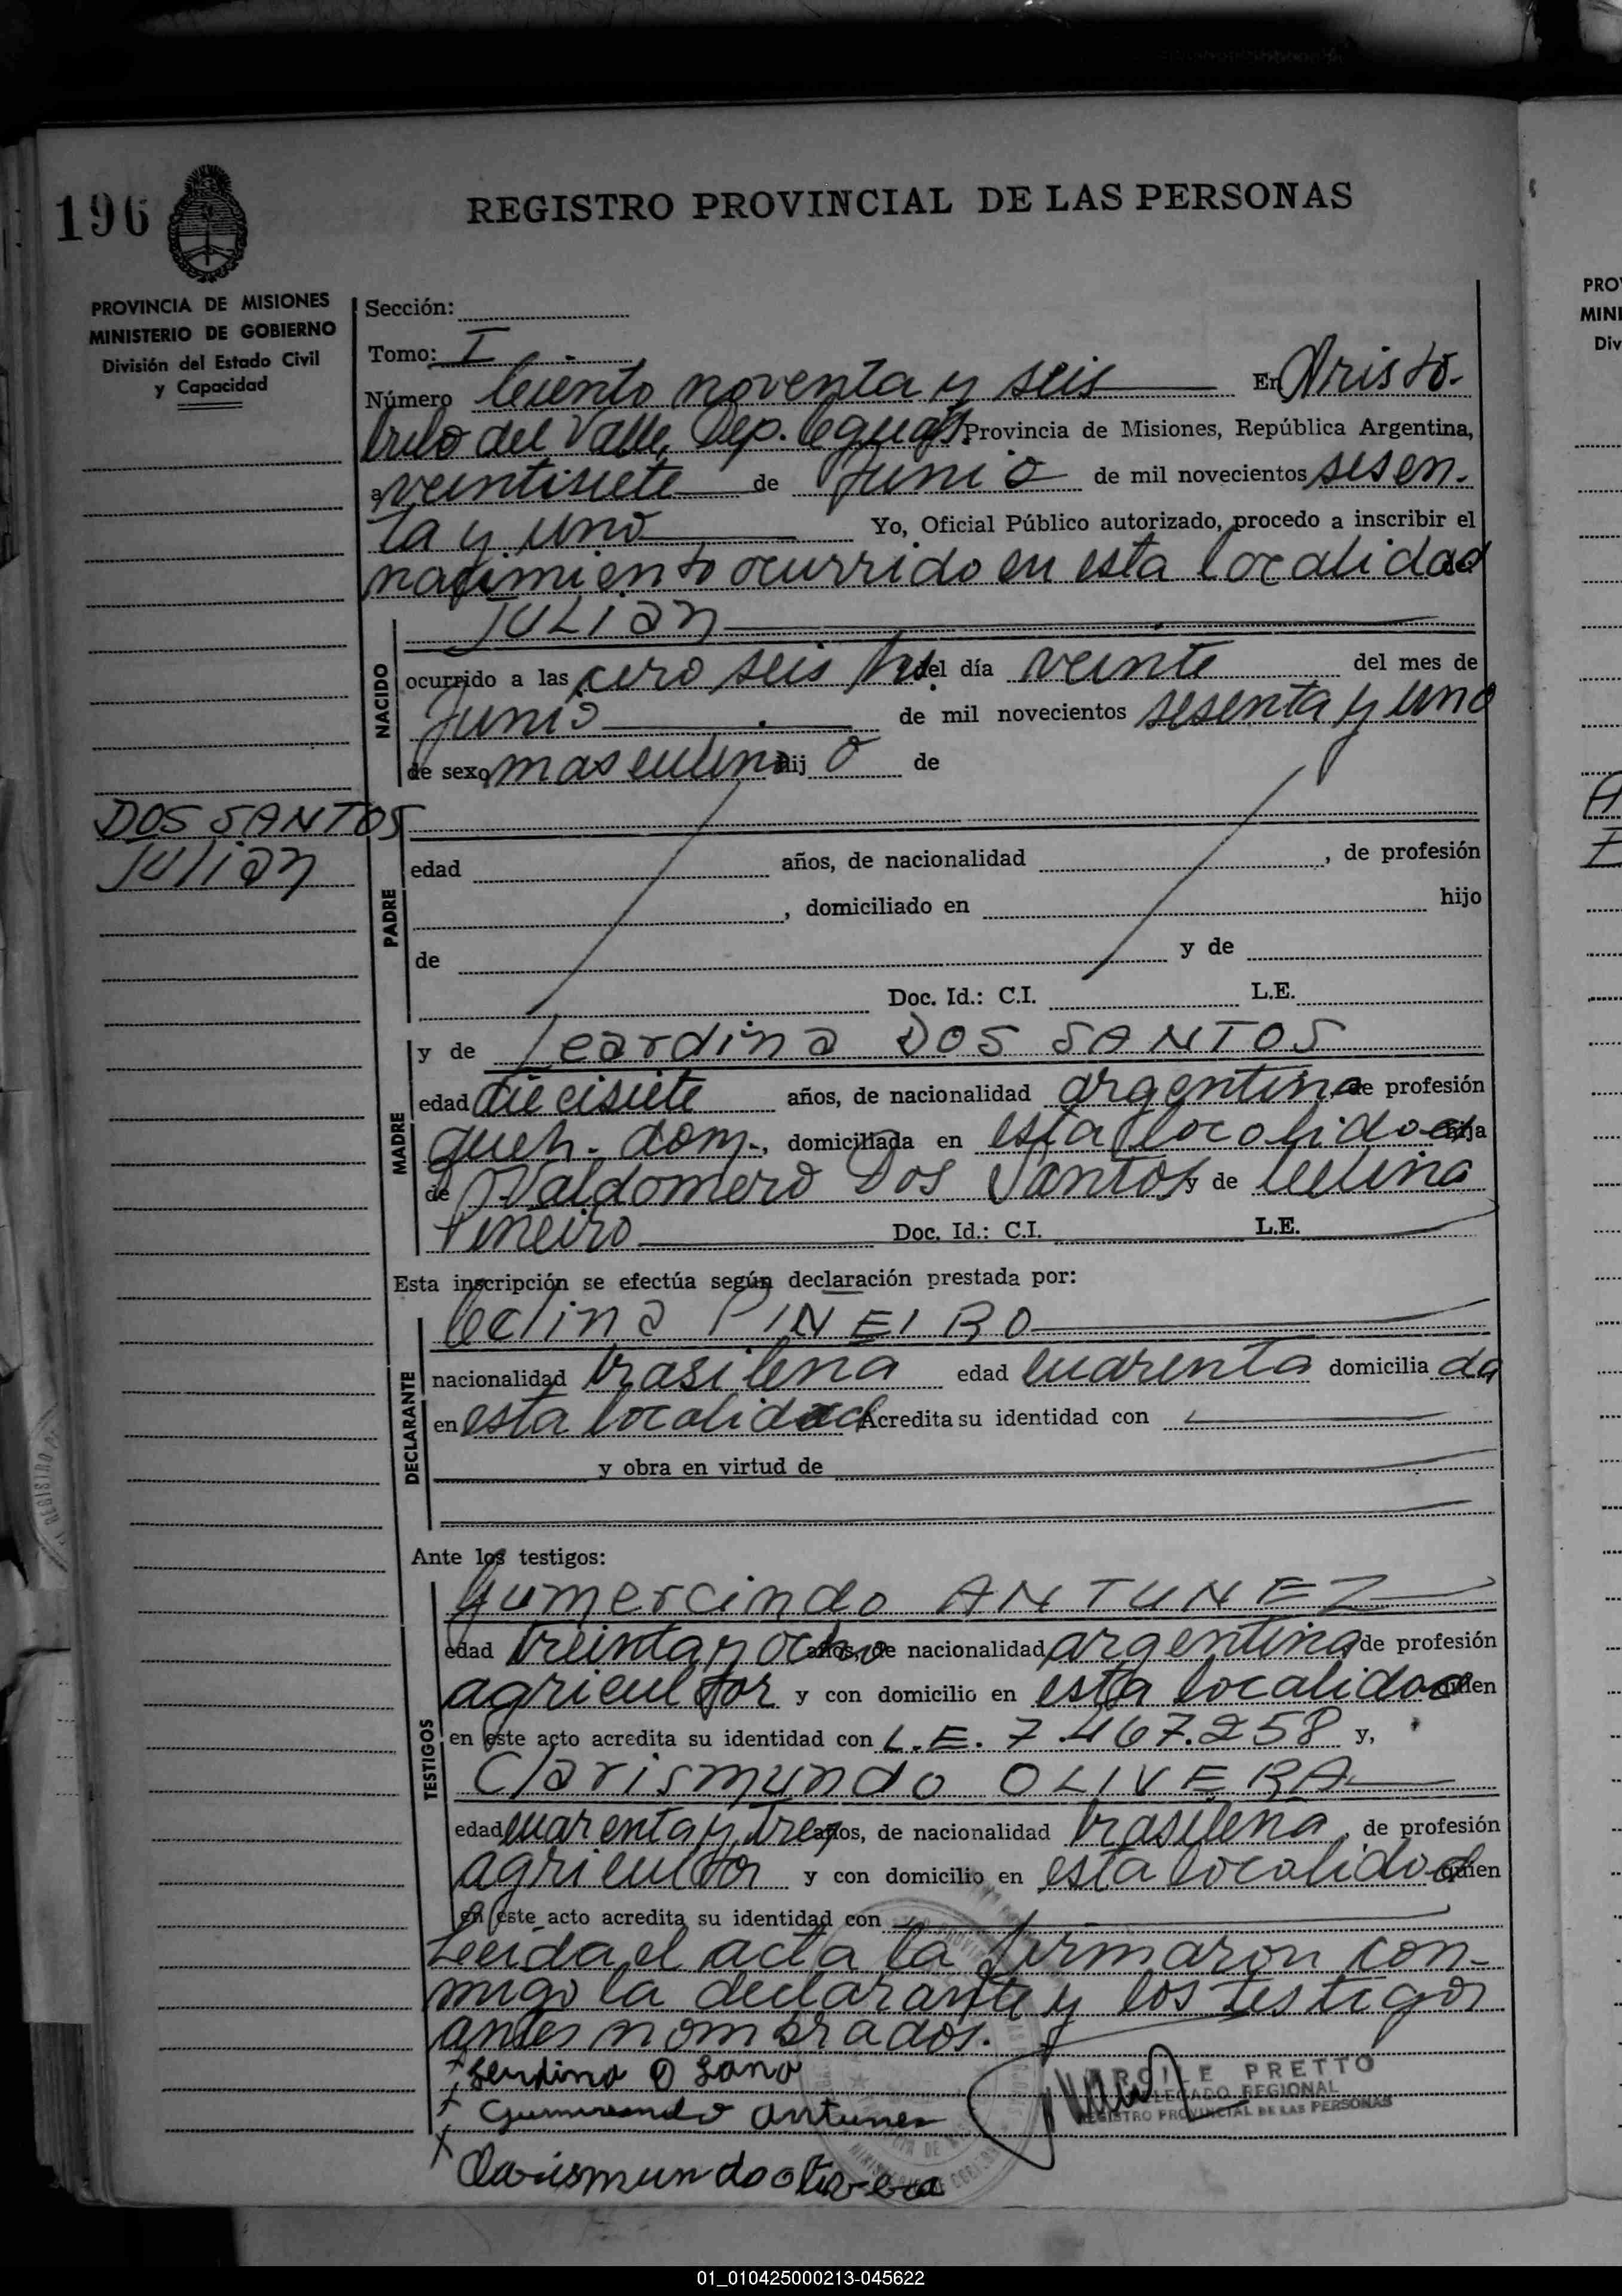 196
REGISTRO PROVINCIAL DE LAS PERSONAS
PROVINCIA DE MISIONES
MINISTERIO DE GOBIERNO
División del Estado Civil
y Capacidad
Sección:
Tomo: I
Número Ciento noventa y seis En Aristó-
bulo del Valle, Dep. Cgúas, Provincia de Misiones, República Argentina,
a veintisiete de Junio de mil novecientos sesen-
ta y uno Yo, Oficial Público autorizado, procedo a inscribir el
nacimiento ocurrido en esta localidad
NACIDO
JULIan
ocurrido a las cero seis hs. del día veinte del mes de
Junio de mil novecientos sesenta y uno
de sexo masculino hij o de
DOS SANTOS
Julian
PADRE
edad años, de nacionalidad , de profesión
, domiciliado en hijo
de y de
Doc. Id.: C.I. L.E.
MADRE
y de Leardina DOS SANTOS
edad diecisiete años, de nacionalidad argentina de profesión
queh. dom., domiciliada en esta localidad hija
de Valdomero Dos Santos y de Celina
Pineiro Doc. Id.: C.I. L.E.
Esta inscripción se efectúa según declaración prestada por:
DECLARANTE
Celina PINEIRO
nacionalidad brasilena edad cuarenta domicilia da
en esta localidad Acredita su identidad con
y obra en virtud de
Ante los testigos:
TESTIGOS
Gumercindo ANTUNEZ
edad treinta y ocho años, de nacionalidad argentina de profesión
agricultor y con domicilio en esta localidad quien
en este acto acredita su identidad con L.E. 7.467.258 y,
Clarismundo OLIVERA
edad cuarenta y tres años, de nacionalidad brasilena, de profesión
agricultor y con domicilio en esta localidad quien
en este acto acredita su identidad con
Leida el acta la firmaron con-
migo la declarante y los testigos
antes nombrados.
Gumercindo Antunes
PRETTO
DELEGADO REGIONAL
REGISTRO PROVINCIAL DE LAS PERSONAS
Clarismundo olivera
PRO
MINI
Div
01_010425000213-045622